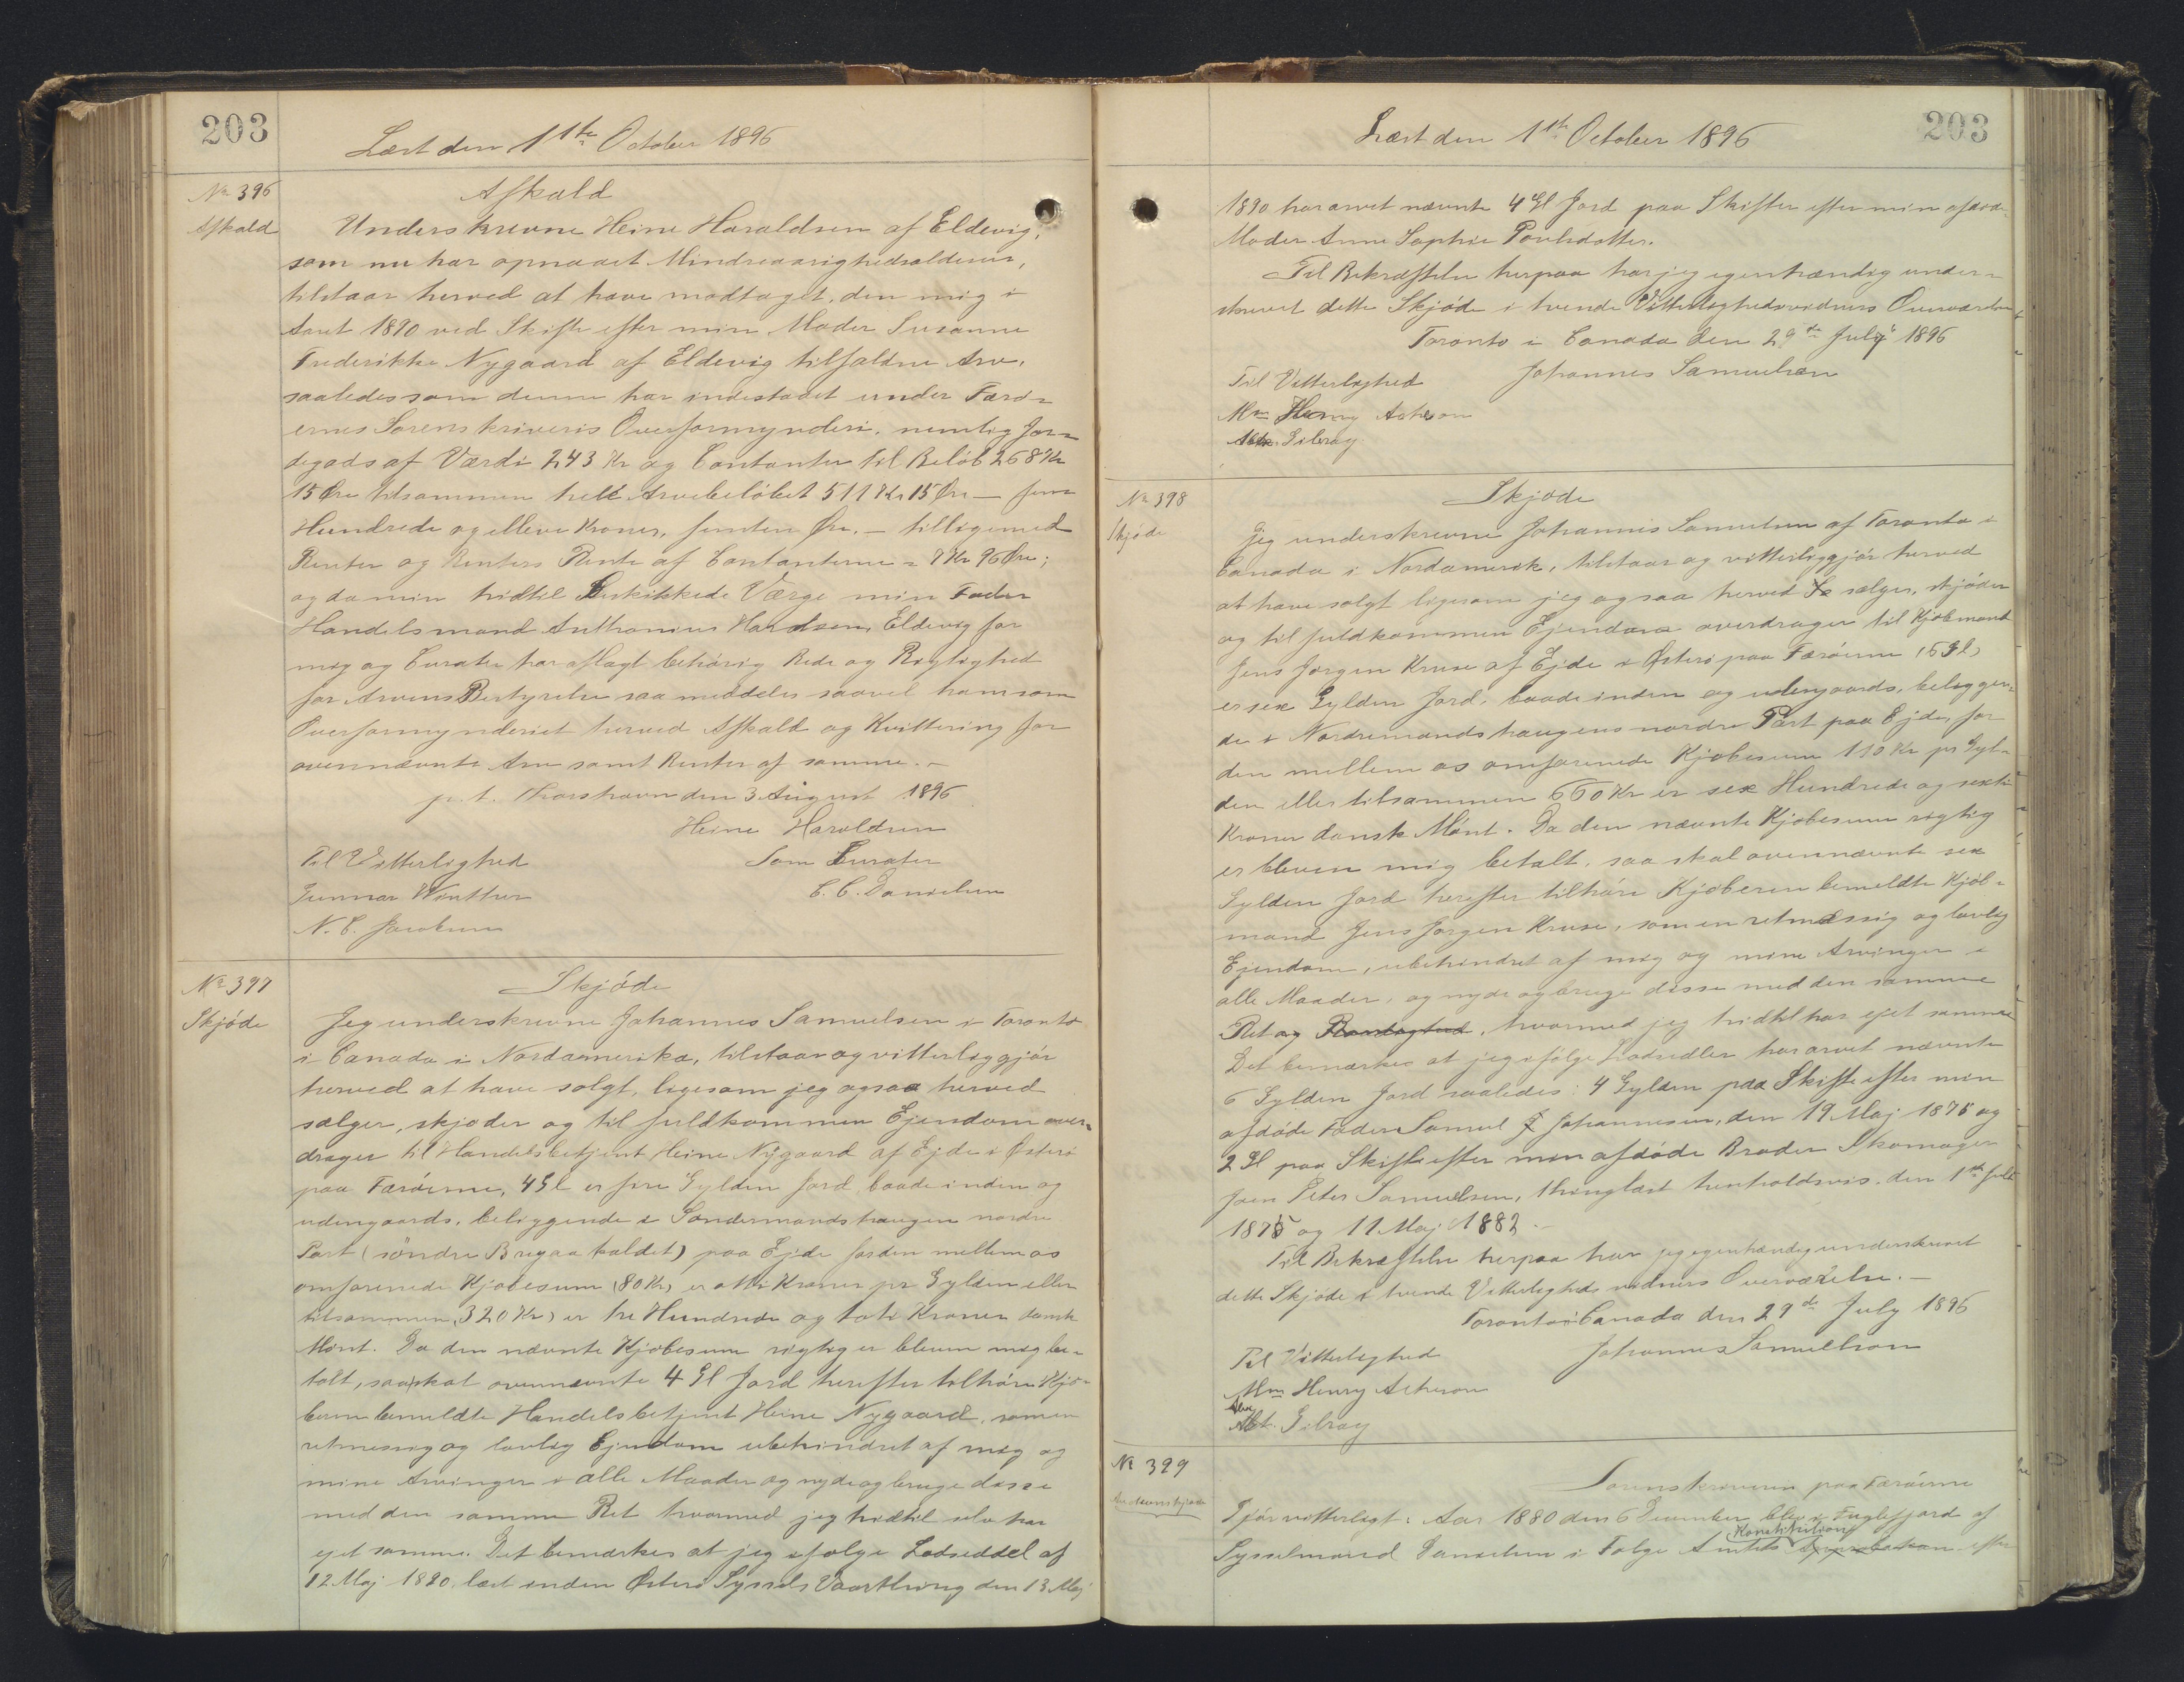 203
Læst den 1ste October 1896
No 396
Afkald
Afkald
Underskrevne Heine Haraldsen af Eldevig,
som nu har opnaaet Mindreaarighedsalderen,
tilstaar herved at have modtaget, den mig i
Aaret 1890 ved Skifte efter min Moder Susanne
Frederikke Nygaard af Eldevig tilfaldne Arv,
saaledes som denne har indestaaet under Færø-
ernes Sorenskriveris Overformynderi, nemlig Jor-
degods af Værdi 243 Kr og Contanter til Beløb 268 Kr
15 Øre tilsammen hele Arvebeløbet 511 Kr 15 Øre — fem
Hundrede og elleve Kroner, femten Øre. — tilligemed
Renter og Renters Rente af Contanterne = 7 Kr 96 Øre;
og da min hidtil Beskikkede Værge min Fader
Handelsmand Anthonius Haraldsen, Eldevig for
mig og Curator har aflagt behørig Rede og Rigtighed
for Arvens Bestyrelse saa meddeles saavel ham som
Overformynderiet herved Afkald og Kvittering for
ovennævnte Arv samt Renter af samme. —
p. t. Thorshavn den 3 August 1896
Heine Haroldsen
Til Vitterlighed
Som Curator
Gunnar Winther
C. C. Danielsen
N. C. Jacobsen
No 397
Skjøde
Skjøde
Jeg underskrevne Johannes Samuelsen i Toronto
i Canada i Nordamerika, tilstaar og vitterliggjør
herved at have solgt, ligesom jeg ogsaa herved
sælger, skjøder og til fuldkommen Ejendom over-
drager til Handelsbetjent Heine Nygaard af Ejde i Østerø
paa Færøerne, 4 Gl er fire Gylden Jord, baade inden og
udengaards, beliggende i Søndermandshaugen nordre
Part (søndre Bregaa kaldet) paa Ejde for den mellem os
omforenede Kjøbesum (80 Kr) er otti Kroner pr Gylden eller
tilsammen (320 Kr) er tre Hundrede og toti Kroner dansk
Mønt. Da den nævnte Kjøbesum rigtig er bleven mig be-
talt, saa skal ovennævnte 4 Gl Jord herefter tilhøre Kjø-
beren bemeldte Handelsbetjent Heine Nygaard, som en
retmessig og lovlig Ejendom ubehindret af mig og
mine Arvinger i alle Maader og nyde og bruge disse
med den samme Ret hvormed jeg hidtil selv har
ejet samme. Det bemærkes at jeg ifølge Lodseddel af
12 Maj 1890, læst inden Østerø Syssels Vaarthing den 13 Maj
Læst den 1ste October 1896
203
1890 har arvet nævnte 4 Gl Jord paa Skifter efter min afdøde
Moder Anne Sophie Poulsdatter.
Til Bekræftelse herpaa har jeg egenhændig under-
skrevet dette Skjøde i tvende Vitterlighedsvidners Overværelse
Toronto i Canada den 29de July 1896
Til Vitterlighed
Johannes Samuelson
Wm Henry Acheson
Gilray
No 398
Skjøde
Skjøde
Jeg underskrevne Johannes Samuelsen af Toronto i
Canada i Nordamerik, tilstaar og vitterliggjør herved
at have solgt ligesom jeg ogsaa herved sælger, skjøder
og til fuldkommen Ejendom overdrager til Kjøbmand
Jens Jørgen Kruse af Ejde i Østerø paa Færøerne (6 Gl)
er sex Gylden Jord, baade inden og udengaards, beliggen-
de i Nordremandshaugens nordre Part paa Ejde, for
den mellem os omforenede Kjøbesum 110 Kr pr Gyl-
den eller tilsammen 660 Kr er sex Hundrede og sexti
Kroner dansk Mønt. Da den nævnte Kjøbesum rigtig
er bleven mig betalt, saa skal ovennævnte sex
Gylden Jord herefter tilhøre Kjøberen bemeldte Kjøb-
mand Jens Jørgen Kruse, som en retmæssig og lovlig
Ejendom, ubehindret af mig og mine Arvinger i
alle Maader, og nyde og bruge disse med den samme
Ret og, hvormed jeg hidtil har ejet samme
Det bemærkes at jeg ifølge Lodsedler har arvet nævnte
6 Gylden Jord saaledes: 4 Gylden paa Skifte efter min
afdøde Fader Samuel J Johannesen, den 19 Maj 1875 og
2 Gl paa Skifte efter min afdøde Broder Skomager
Joen Peter Samuelsen, thinglæst henholdsvis den 1ste Juli
1875 og 11 Maj 1882. —
Til Bekræftelse herpaa har jeg egenhændig underskrevet
dette Skjøde i tvende Vitterligheds vidners Overværelse. —
Toronto i Canada den 29de July 1896
Til Vitterlighed
Johannes Samuelson
Wm Henry Acheson
Alex Gilray
No 399
Auctionsskjøde
Sorenskriveren paa Færøerne
Gjør vitterligt: Aar 1880 den 6 December blev i Fuglefjord af
Konstitution
Sysselmand Danielsen i Følge Amtets Approbation efter